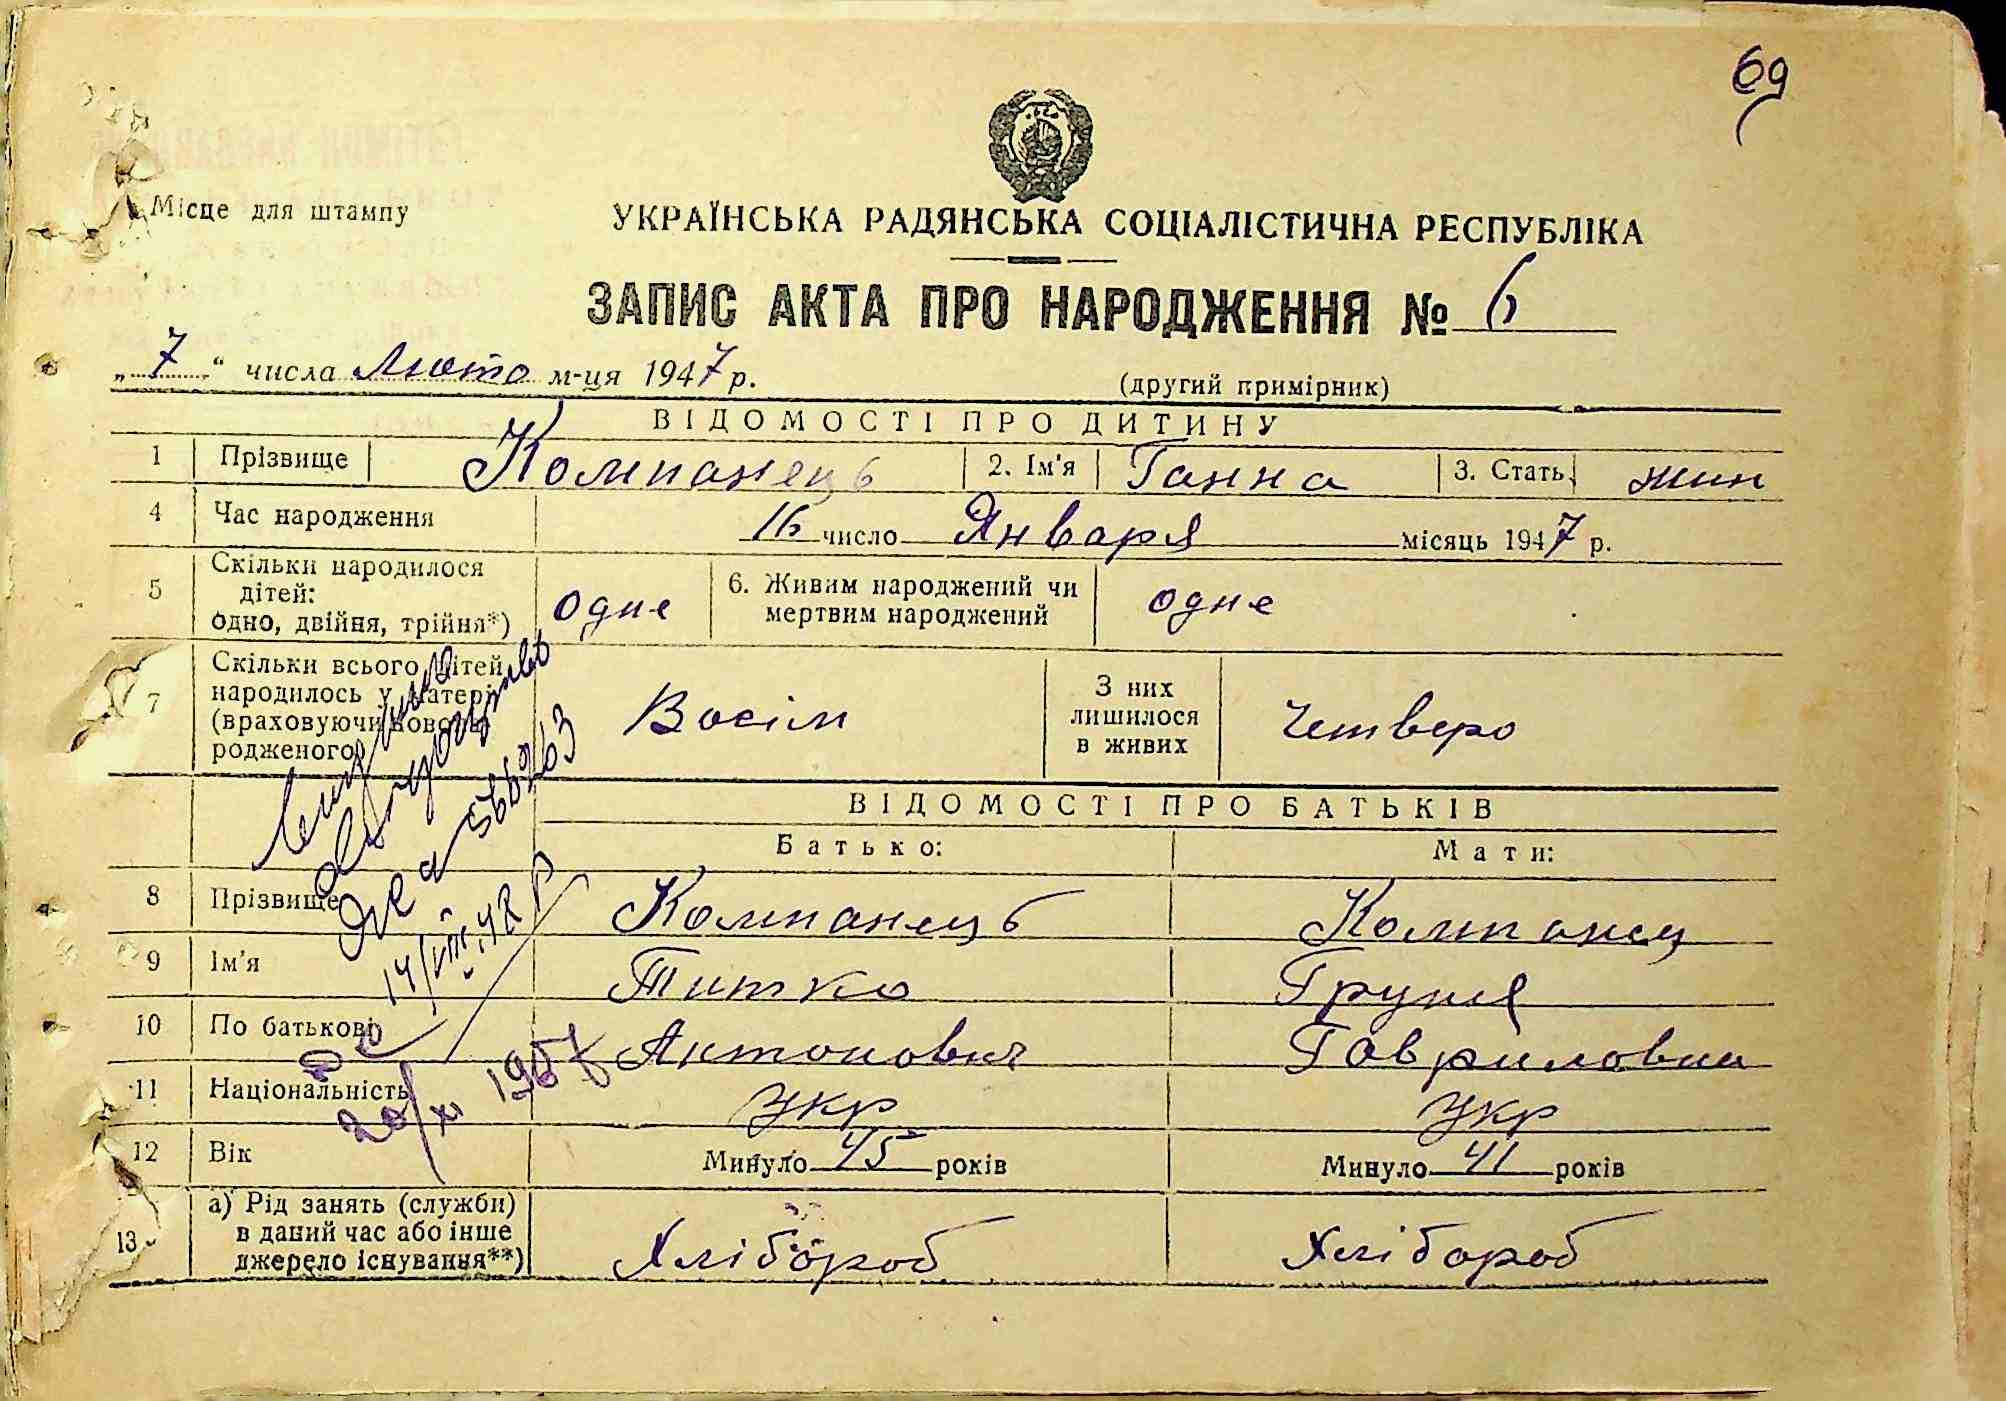 69
Місце для штампу
УКРАЇНСЬКА РАДЯНСЬКА СОЦІАЛІСТИЧНА РЕСПУБЛІКА
ЗАПИС АКТА ПРО НАРОДЖЕННЯ № 6
„7“ числа Люто м-ця 1947 р.
(другий примірник)
ВІДОМОСТІ ПРО ДИТИНУ
1 Прізвище Компанець 2. Ім'я Ганна 3. Стать жин
4 Час народження 16 число Января місяць 1947 р.
5 Скільки народилося
дітей:
одно, двійня, трійня*) одне
6. Живим народжений чи
мертвим народжений одне
7 Скільки всього дітей
народилось у матері
(враховуючи ново-
родженого) Восім
З них
лишилося
в живих Четверо
ВІДОМОСТІ ПРО БАТЬКІВ
Батько: Мати:
8 Прізвище Компанець Компанец
9 Ім'я Титко Груня
10 По батькові Антонович Гавриловна
11 Національність укр укр
12 Вік Минуло 45 років Минуло 41 років
13 а) Рід занять (служби)
в даний час або інше
джерело існування**) Хлібороб Хлібороб
14/VIII.47 р
20/XI 1957